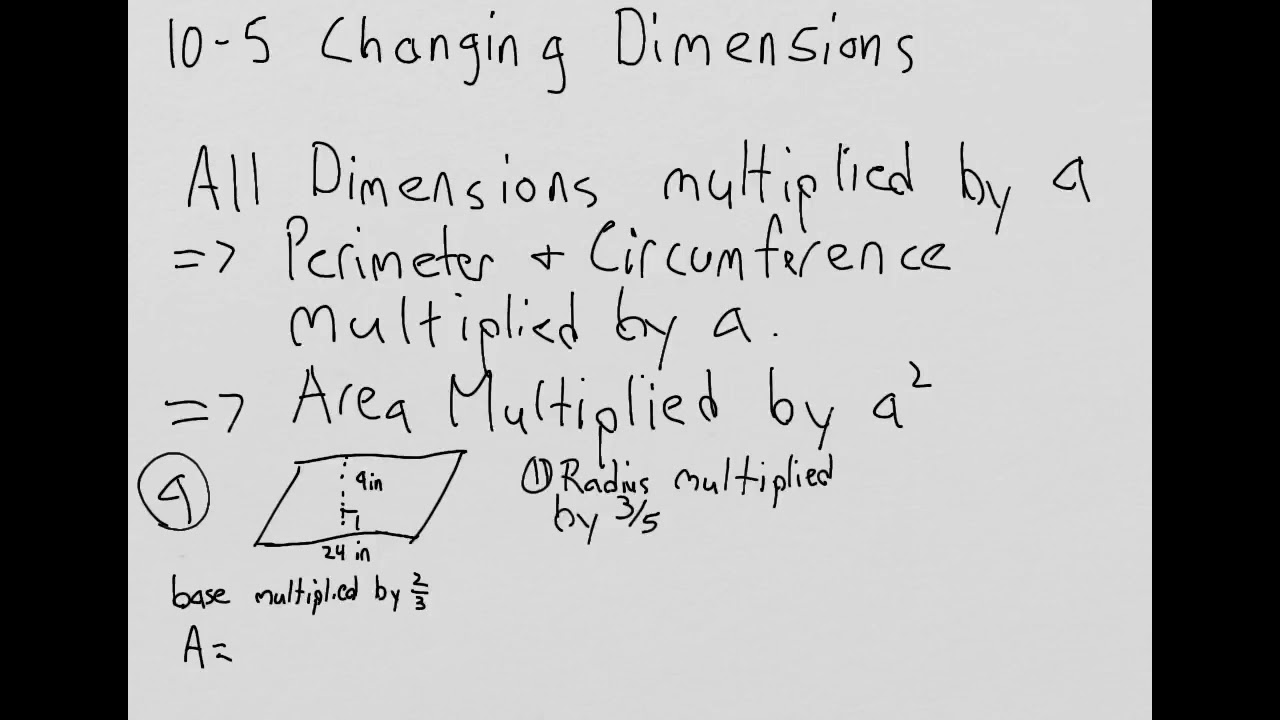 10-5 Changing Dimensions
All Dimensions multiplied by a
=> Perimeter + Circumference
multiplied by a.
=> Area Multiplied by a²
9
9in
24 in
base multiplied by 2/3
A=
① Radius multiplied
by 3/5